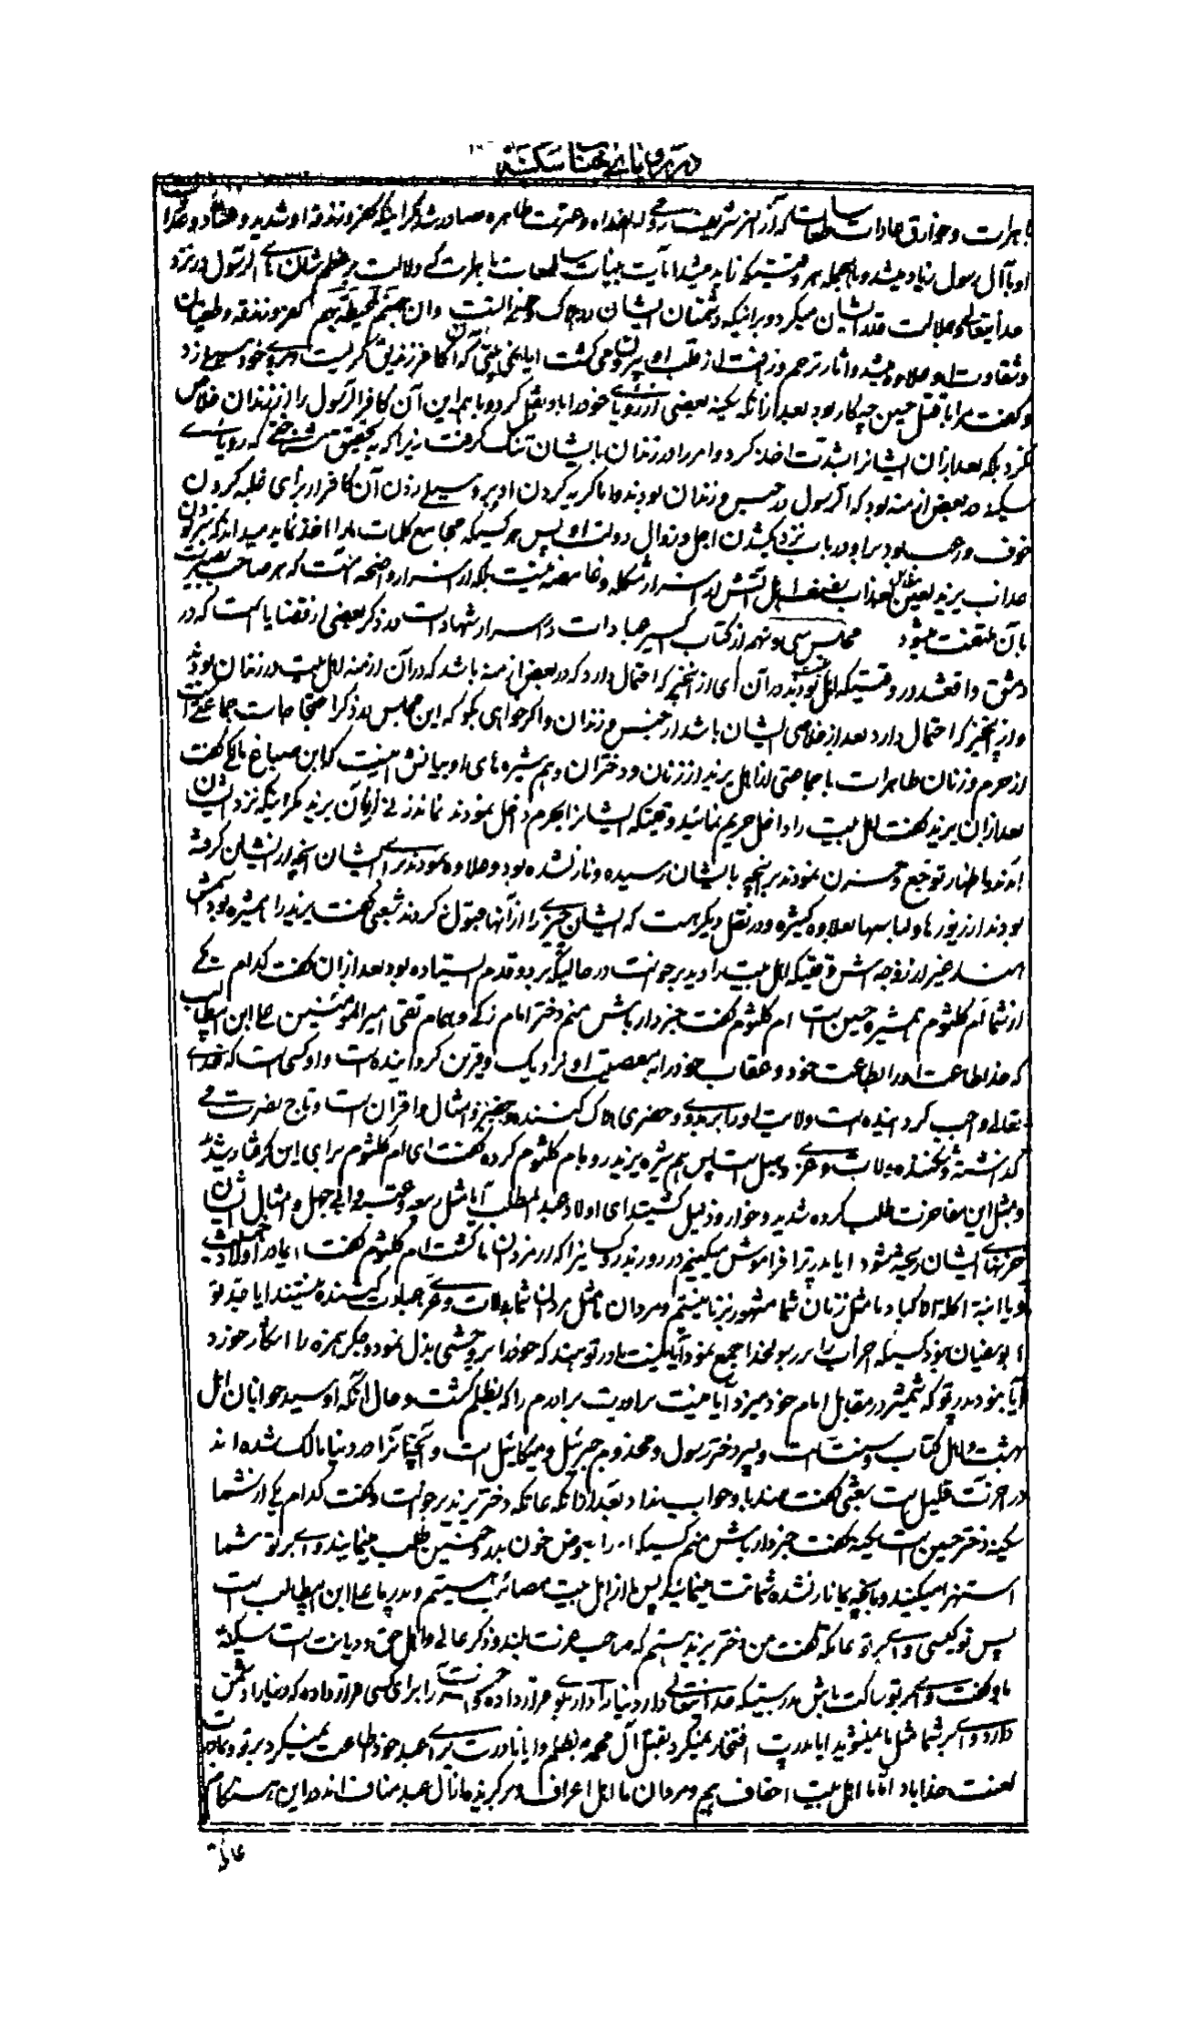 باهرات و خوارق عادات ساطعات که از سر شریف رسول خدا و عترت طاهره صادر شد مگر اینکه کفر و زندقه او شدید و عناد و
او با آل رسول زیاد میشد و بالجمله هر وقتیکه نایره میشد آیات بینات ساطعات باهرات که دلالت بر عظم شان آل رسول در نزد
خدایتعالی و جلالت قدر ایشان میکرد و بر اینکه دشمنان ایشان در هلاک و خسرانست وان جهنم لمحیطة بهم کفر و زندقه و طغیان
و شقاوت او علاوه میشد و آثار ترحم و زینت از قلب او بیرون می گشت ایا نمی بینی که آن کافر زندیق گریست و بروی خود سیلی زد
و گفت مرا با قتل حسین چه کار بود بعد از آنکه سکینه بعضی از رویای خود را باو نقل کرد و با همه این آن کافر آل رسول را از زندان خلاص
نکرد بلکه بعد از آن ایشانرا بشدت اخذ کرد و امر را در زندان بایشان تنگ گرفت زیرا که به تحقیق شناختی که رویای
سکینه در بعض ازمنه بود که آل رسول در حبس و زندان بودند و اما گریه کردن او و بر رو سیلی زدن آن کافر از برای غلبه کردن
خوف و رعب بود بر او در باب نزدیک شدن اجل و زوال دولت او پس هر کسیکه مجامع کلمات ما را اخذ نماید میداند که
عذاب یزید لعین عذاب اهل آتش از اسرار مشکله و غامضه نیست بلکه از اسرار واضحه است که هر صاحب بصیرت
بآن ملتفت میشود مجلس سی و نهم از کتاب اکسیر عبادات و اسرار شهادات در ذکر بعضی از قضایا است که در
دمشق واقع شد در وقتیکه اهل بیت بودند در آن ای از آنچیز که احتمال دارد که در بعض ازمنه باشد که در آن ازمنه اهل بیت در زندان بودند
و از آنچیز که احتمال دارد بعد از خلاصی ایشان باشد از حبس و زندان و اگر خواهی بگو که این مجلس در ذکر احتجاجات جماعتی است
از حرم و زنان طاهرات با جماعتی از اهل یزید از زنان و دختران و همشیره های او بیانش اینست که ابن صباغ مالکی گفت
بعد از آن یزید گفت اهل بیت را داخل حریم نمائید وقتیکه ایشانرا بحرم داخل نمودند نماندند زنی از آل یزید مگر اینکه نزد ایشان
آمدند با اظهار توجع و حزن نمودند بر آنچه بایشان رسیده و نازل شده بود و علاوه نمودند برای ایشان آنچه از ایشان گرفته
بودند از زیورها و لباسها بعلاوه کثیره و در نقل دیگر هست که ایشان چیزی را از آنها قبول نکردند شعبی گفت یزید را همشیره بود اسمش
هند غیر از زوجه اش وقتیکه اهل بیت را دید برجست در حالیکه بر دو قدم ایستاده بود بعد از آن گفت کدام یکی
از شما ام کلثوم همشیره حسین است ام کلثوم گفت خبردار باش منم دختر امام زکی و همام تقی امیرالمؤمنین علی ابن ابیطالب
که خدا طاعت او را بطاعت خود و عقاب خود را به معصیت او نزدیک و قرین گردانیده است و او کسی است که خدای
تعالی واجب کرد انیده است ولایت او را بر بدوی و حضری هلاک کننده امثال و اقران است و تاج نصرت
گذاشته و شکننده لات و عزی و هبل است پس همشیره یزید رو بام کلثوم کرده گفت ای ام کلثوم برای این گرفتار شدید
و بمثل این مفاخرت طلب کرده شدید و خوار و ذلیل گشتید ای اولاد عبدالمطلب آیا مثل ربیعه و عتبه و ابی جهل و امثال ایشان
خونهای ایشان ریخته میشود ایا پدر ترا فراموش میکنیم در روز بدر و حنین که از مردان ما کشت ام کلثوم گفت
ویا ابنة اکلة الاکباد ما مثل زنان شما مشهور بزنا نیستیم و مردان ما مثل مردان شما به لات و عزی عبادت کننده نیستند ایا جد تو
ابوسفیان نبود کسیکه احزاب را بر رسولخدا جمع نمود آیا نیست مادر تو هند که خود را بر وحشی بذل نمود و جگر حمزه را آشکار خورد
آیا نبود پدر تو که شمشیر در مقابل امام خود میزد آیا نیست برادرت برادرم را که بظلم کشت و حال آنکه او سید جوانان اهل
بهشت و اهل کتاب و سنت است و پسر دختر رسول و مخدوم جبرئیل و میکائیل است و آنچنانرا در دنیا مالک شده اند
در آخرت قلیل است شعبی گفت هند باو جواب نداد بعد از آنکه عاتکه دختر یزید برجست و گفت کدام یکی از شما
سکینه دختر حسین است سکینه گفت خبردار باش منم کسیکه
استهزا میکنید و بآنچه بما نازل شده شماتت مینمائید پس ما از اهل بیت مصائب هستیم و پدر ما علی ابن ابیطالب است
پس تو کیستی وای بر تو عاتکه گفت من دختر یزید هستم که صاحب عزت بلند و ذکر عالی و اهل حق و دیانت است سکینه
باو گفت وای بر تو ساکت باش بدرستیکه خدایتعالی دار دنیا را قرار داده آخرت را برای کسی قرار داده که دنیا را دشمن
دارد وای بر شما مثل ما میشوید ایا پدرت افتخار نمیکرد بقتل آل محمد بظلم
لعنت خدا باد اما ما اهل بیت احقاف هیم و مردان ما اهل اعراف و مرکز بزرگان آل عبد مناف اند در این هنگام
عاتکه